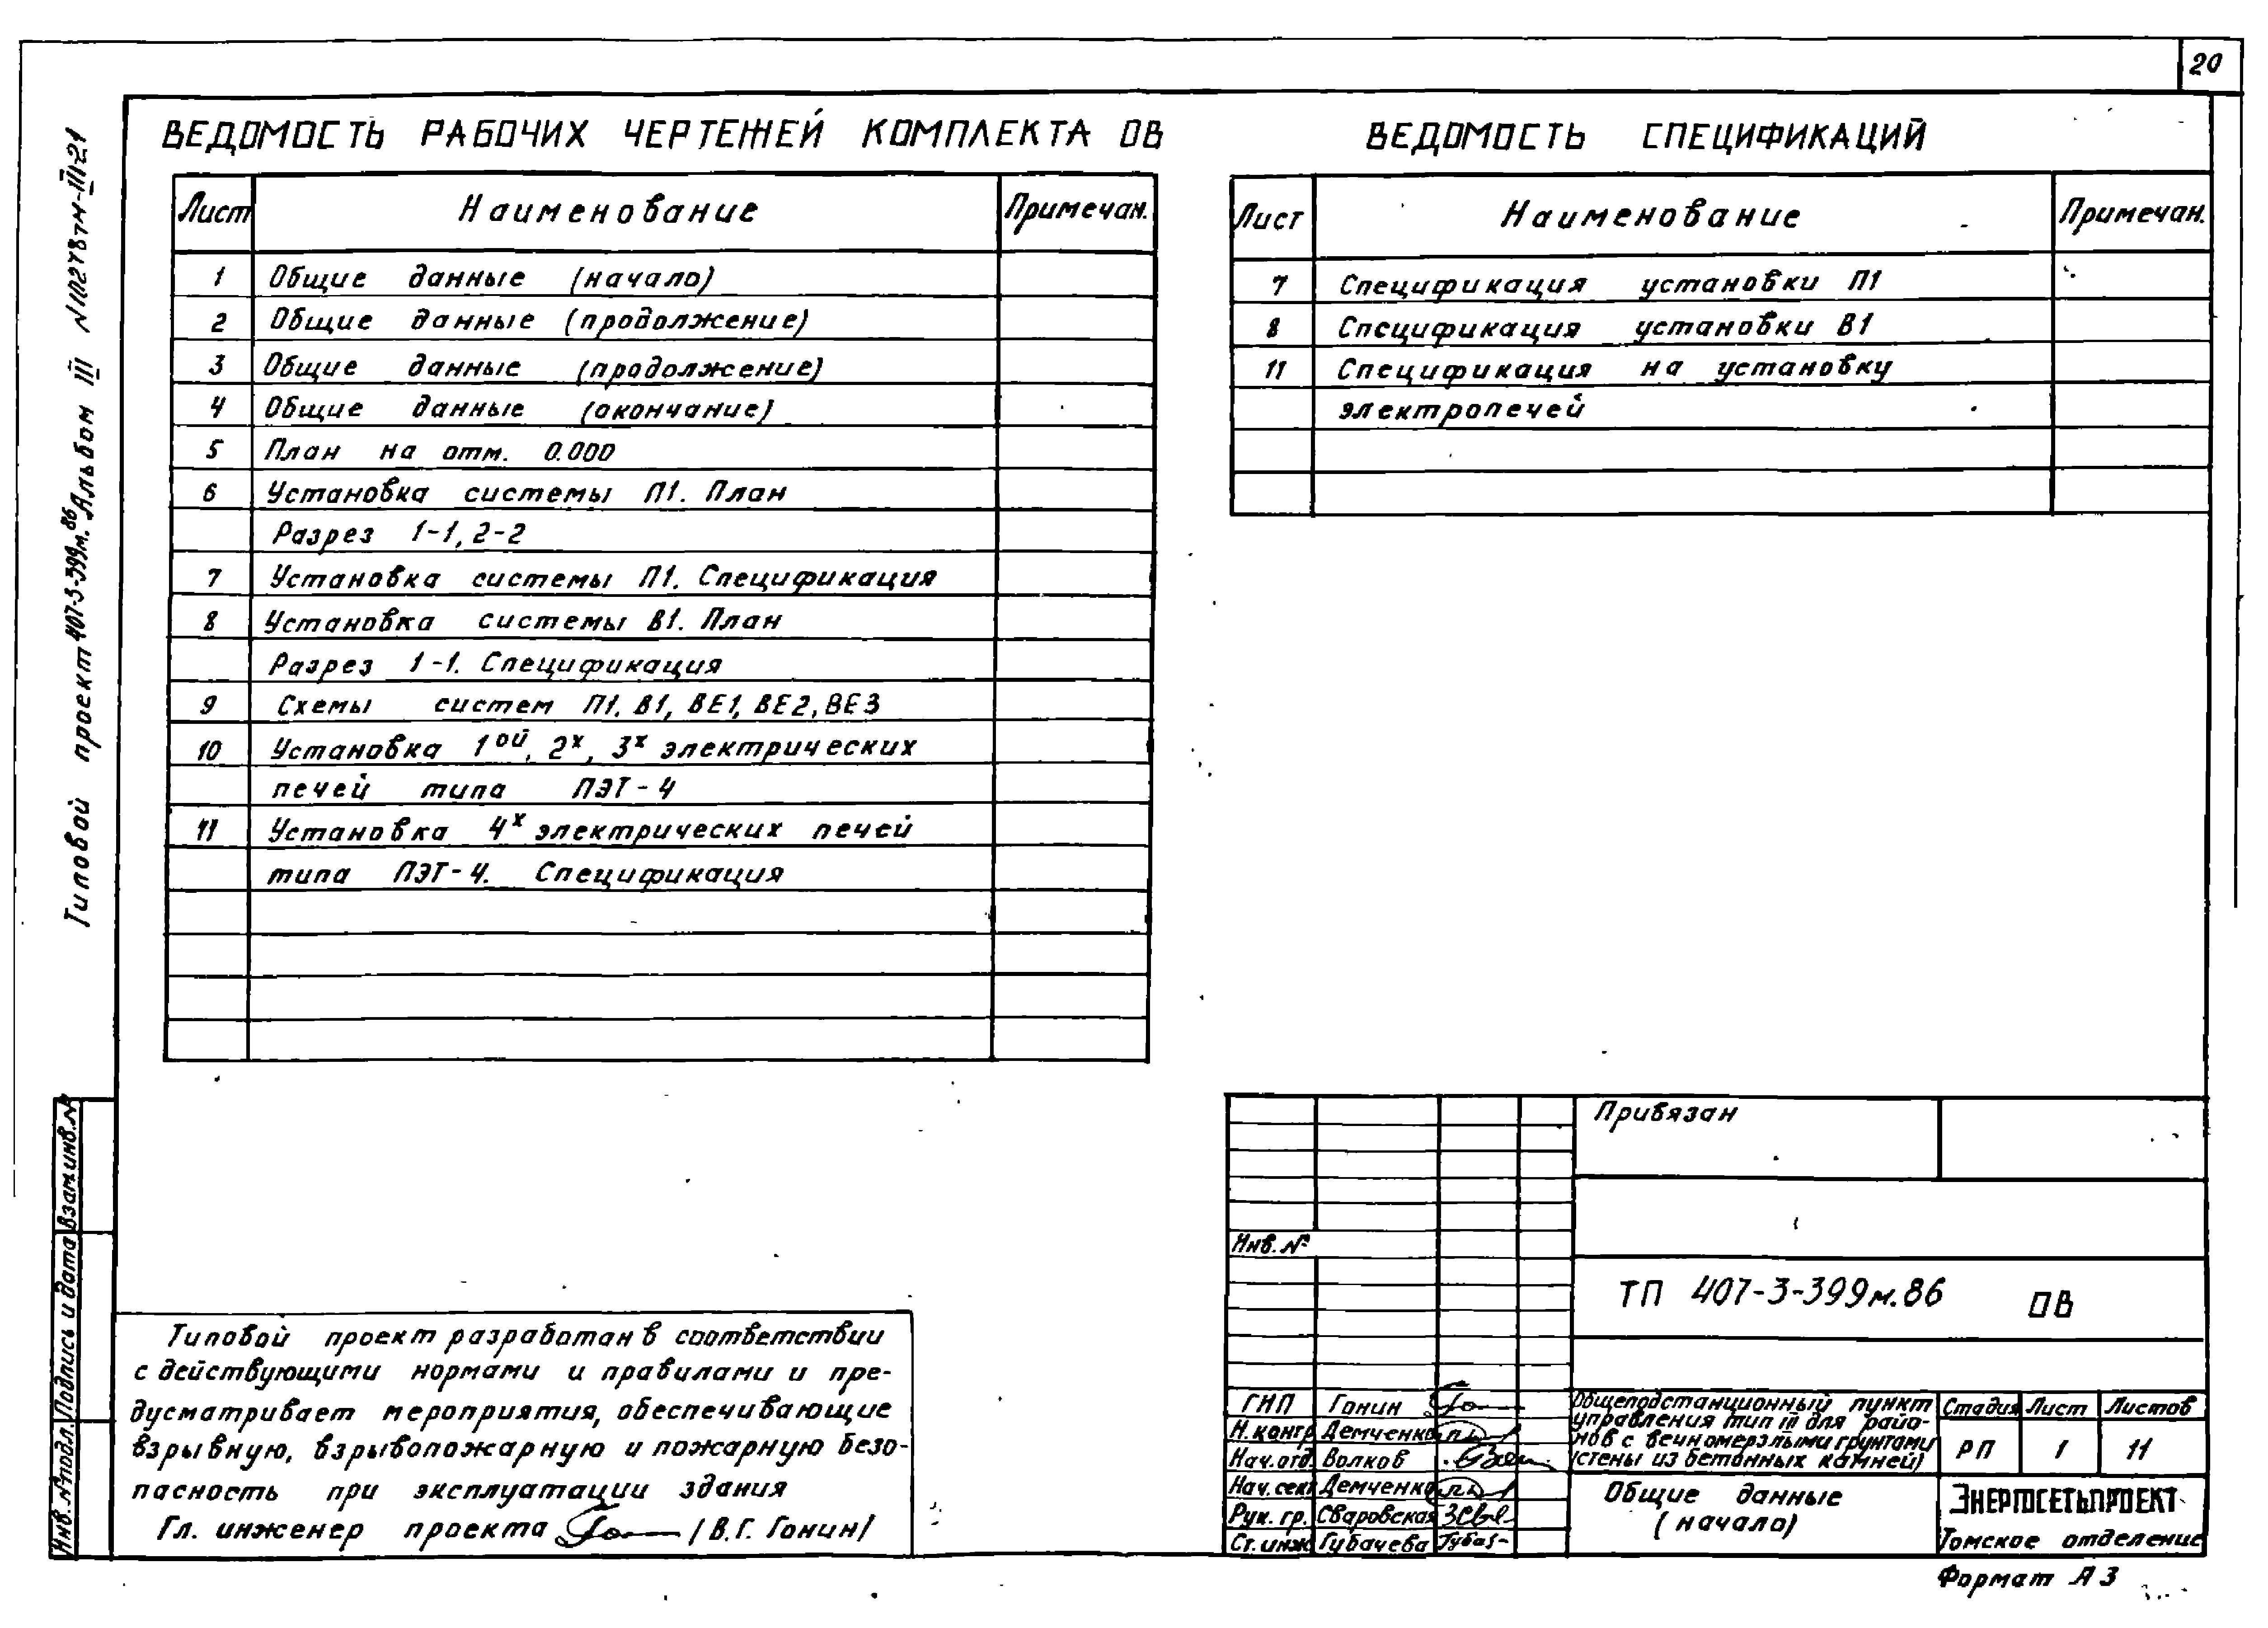 20
ВЕДОМОСТЬ РАБОЧИХ ЧЕРТЕЖЕЙ КОМПЛЕКТА ОВ
Лист Наименование Примечан.
1 Общие данные (начало)
2 Общие данные (продолжение)
3 Общие данные (продолжение)
4 Общие данные (окончание)
5 План на отм. 0.000
6 Установка системы П1. План
Разрез 1-1, 2-2
7 Установка системы П1. Спецификация
8 Установка системы В1. План
Разрез 1-1. Спецификация
9 Схемы систем П1. В1, ВЕ1, ВЕ2, ВЕ3
10 Установка 1ой, 2х, 3х электрических
печей типа ПЭТ-4
11 Установка 4х электрических печей
типа ПЭТ-4. Спецификация
ВЕДОМОСТЬ СПЕЦИФИКАЦИЙ
Лист Наименование Примечан.
7 Спецификация установки П1
8 Спецификация установки В1
11 Спецификация на установку
электропечей
Типовой проект 407-3-399м.86 Альбом III
Инв. № подл. Подпись и дата Взам.инв.№
Типовой проект разработан в соответствии
с действующими нормами и правилами и пре-
дусматривает мероприятия, обеспечивающие
взрывную, взрывопожарную и пожарную безо-
пасность при эксплуатации здания
Гл. инженер проекта /В.Г. Гонин/
Привязан
Инв. №
ТП 407-3-399м.86 ОВ
ГИП Гонин
Н.контр Демченко
Нач.отд. Волков
Нач.сект Демченко
Рук. гр. Сваровская
Ст.инж Губачева
Общеподстанционный пункт
управления тип III для райо-
нов с вечномерзлыми грунтами
(стены из бетонных камней)
Стадия Лист Листов
РП 1 11
Общие данные
(начало)
ЭНЕРГОСЕТЬПРОЕКТ
Томское отделение
Формат А3